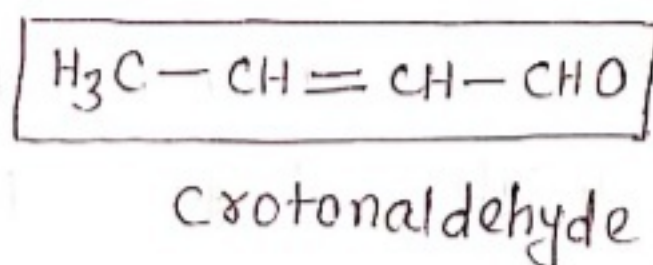 H₃C — CH = CH — CHO
Crotonaldehyde